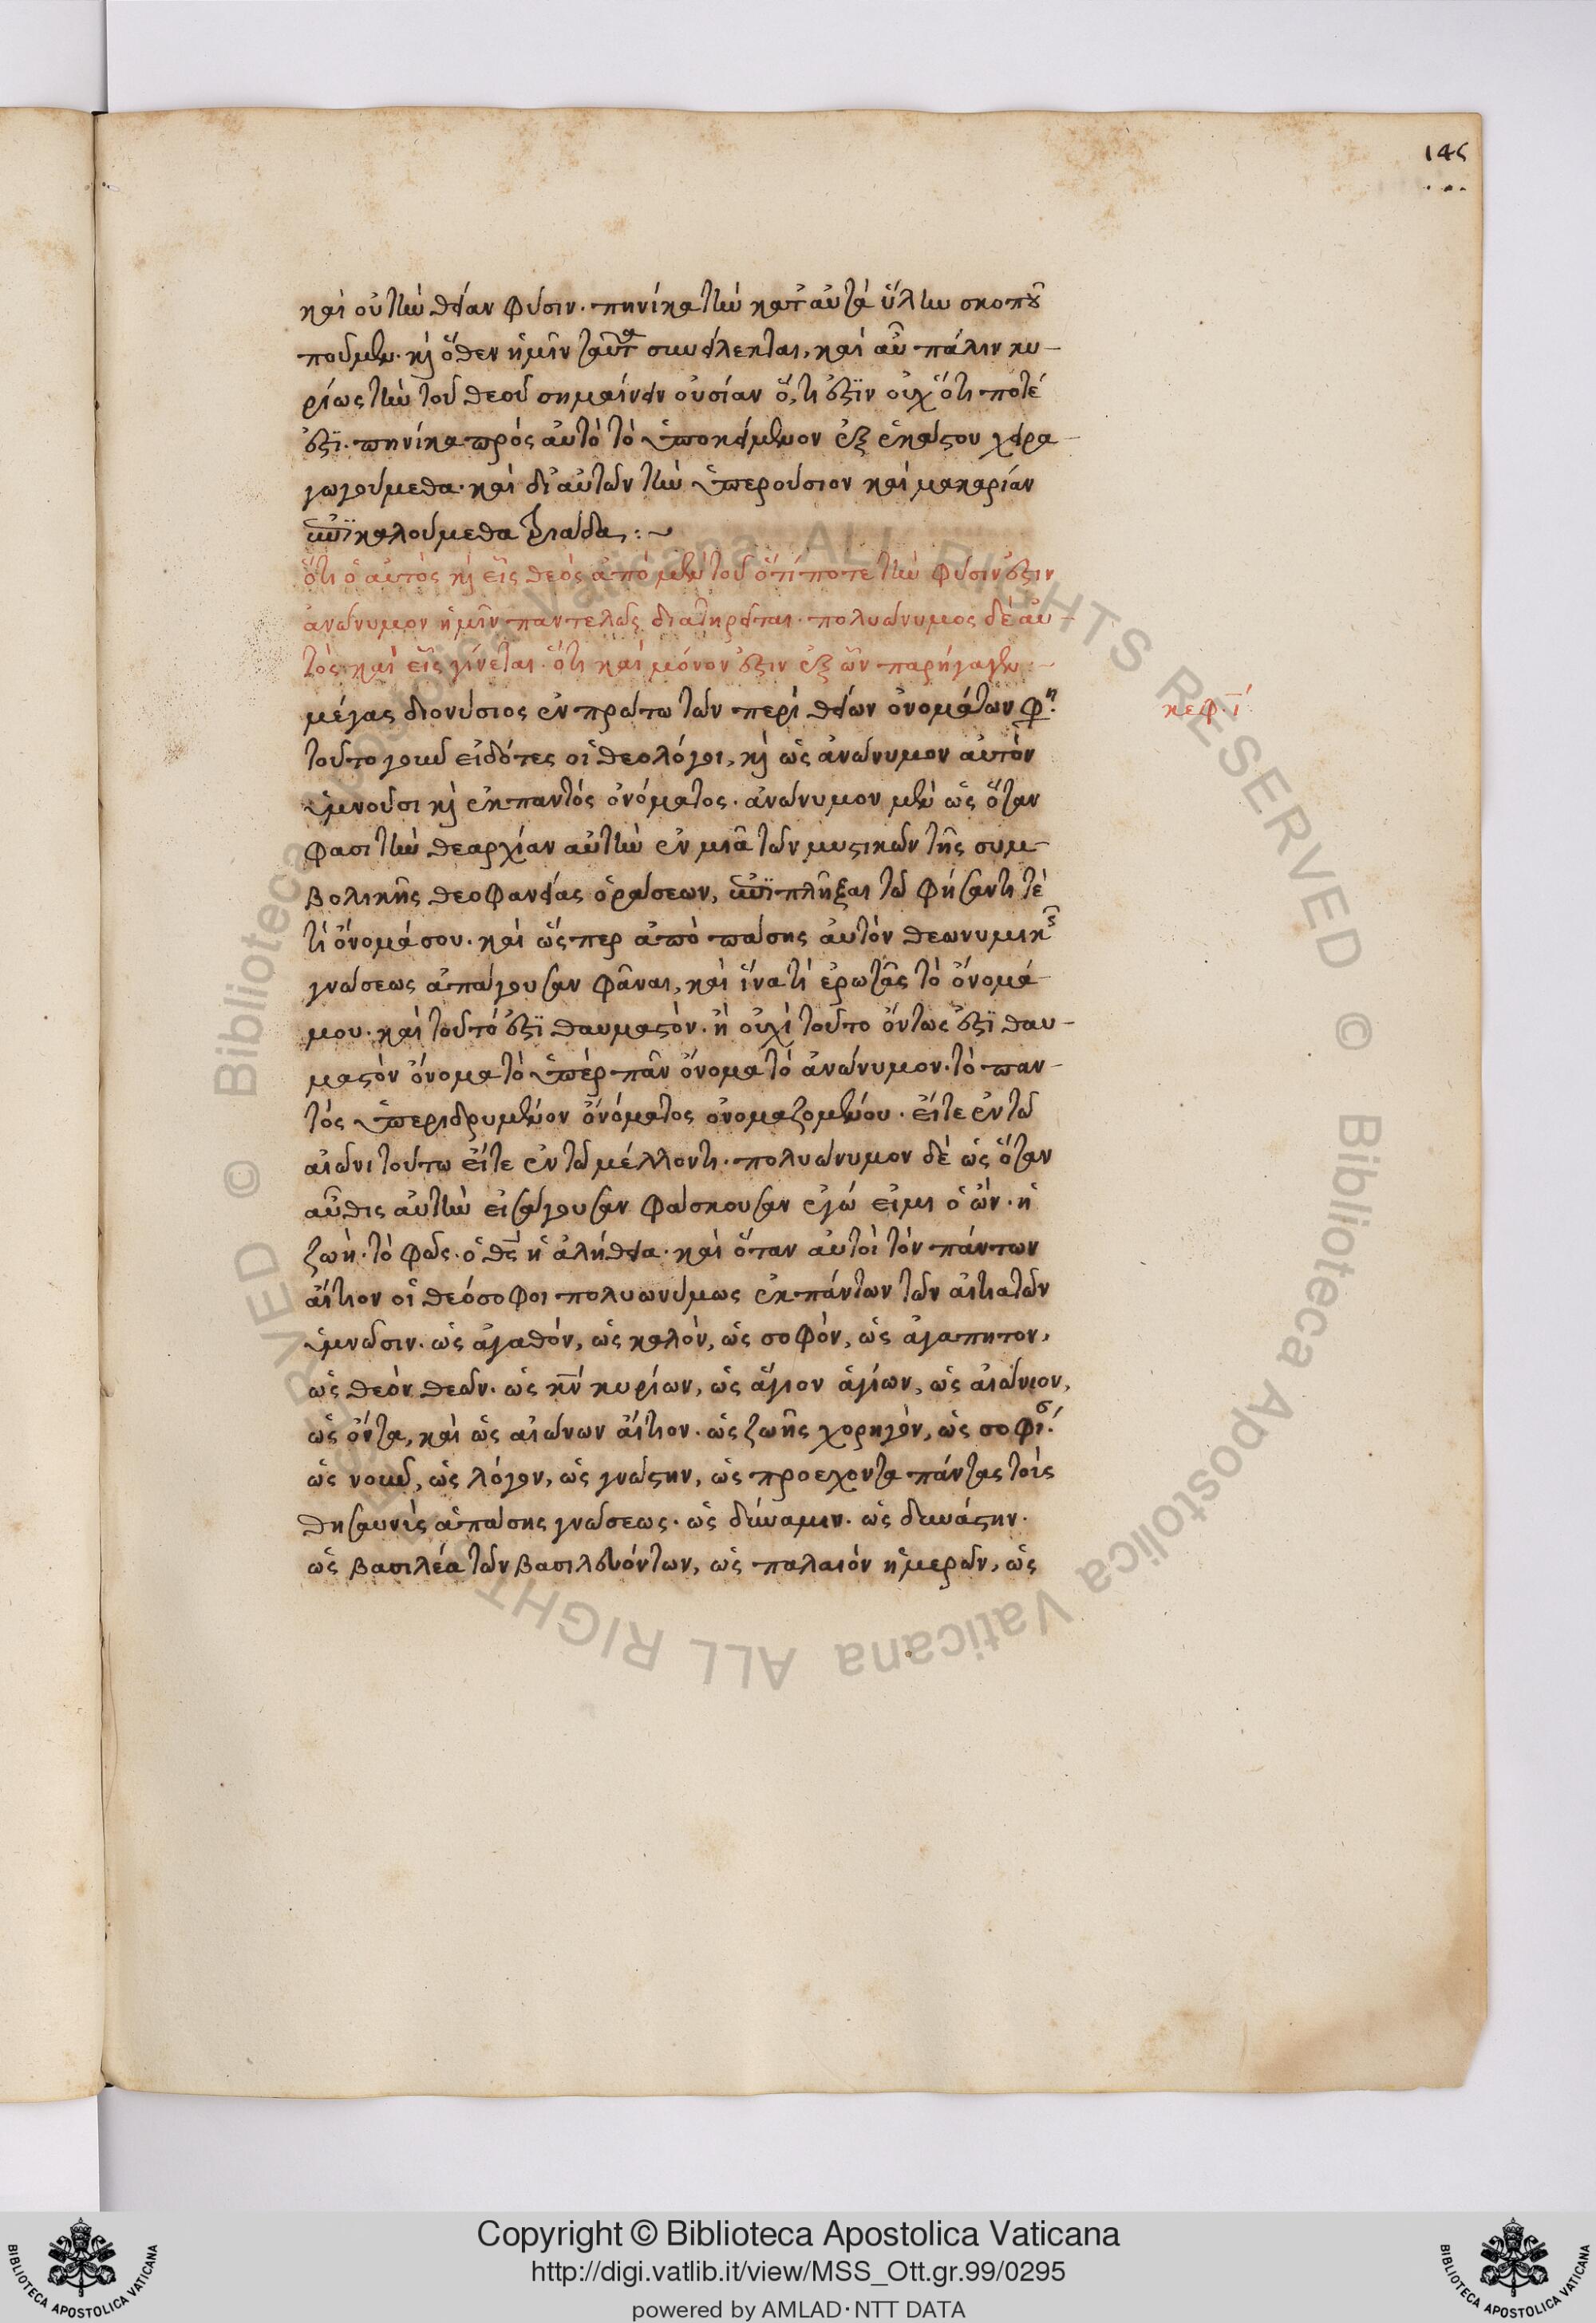 145
καὶ οὐ τὴν θείαν φύσιν. πηνίκα τὴν κατ' αὐτὰ ὕλην σκοποῦ
ποῦμεν. κỳ ὅθεν ἡμῖν ταῦτα συνείλεκται, καὶ αὖ πάλιν κυ-
ρίως τὴν τοῦ θεοῦ σημαίνειν οὐσίαν ὅ,τι ἐστὶν οὐχ' ὅτι ποτέ
ἐστι. πηνίκα πρὸς αὐτὸ τὸ ὑποκείμενον ἐξ ἑκάστου χειρα-
γωγούμεθα. καὶ δι' αὐτῶν τὴν ὑπερούσιον καὶ μακαρίαν
ἐπικαλούμεθα τριάδα :~
ὅτι ὁ αὐτὸς κỳ εἷς θεὸς ἀπὸ μὲν τοῦ ὅ τί ποτε τὴν φύσιν ἐστιν
ἀνώνυμον ἡμῖν παντελῶς διατηρεῖται. πολυώνυμος δὲ αὐ-
τὸς καὶ εἷς γίνεται. ὅτι καὶ μόνον ἐστιν ἐξ ὧν παρήγαγεν :~
μέγας διονύσιος ἐν πρώτω τῶν περὶ θείων ὀνομάτων φη.
κεφ. ί
τοῦτο γοῦν εἰδότες οἱ θεολόγοι, κỳ ὡς ἀνώνυμον αὐτὸν
ὑμνοῦσι κỳ ἐκ παντὸς ὀνόματος. ἀνώνυμον μὲν ὡς ὅταν
φασι τὴν θεαρχίαν αὐτὴν ἐν μιᾶ τῶν μυστικῶν τῆς συμ-
βολικῆς θεοφανείας ὁράσεων, ἐπιπλῆξαι τῶ φήσαντι τὲ
τί ὄνομά σου. καὶ ὥσπερ ἀπὸ πάσης αὐτὸν θεωνυμικῆς
γνώσεως ἀπάγουσαν φᾶναι, καὶ ἵνα τί ἐρωτᾶς τὸ ὄνομά
μου. καὶ τοῦτό ἐστι θαυμαστὸν. ἢ οὐχὶ τοῦτο ὄντως ἐστὶ θαυ-
μαστὸν ὄνομα τὸ ὑπὲρ πᾶν ὄνομα τὸ ἀνώνυμον. τὸ παν-
τὸς ὑπεριδρυμένον ὀνόματος ὀνομαζομένου. εἴτε ἐν τῶ
αἰῶνι τούτω εἴτε ἐν τῶ μέλλοντι. πολυώνυμον δὲ ὡς ὅταν
αὖθις αὐτὴν εἰσάγουσαν φάσκουσαν ἐγώ εἰμι ὁ ὤν. ἡ
ζωὴ. τὸ φῶς. ὁ θς ἡ ἀλήθεια. καὶ ὅταν αὐτοὶ τὸν πάντων
αἴτιον οἱ θεόσοφοι πολυωνύμως ἐκ πάντων τῶν αἰτιατῶν
ὑμνῶσιν. ὡς ἀγαθόν, ὡς καλὸν, ὡς σοφὸν, ὡς ἀγαπητον,
ὡς θεὸν θεῶν. ὡς κν κυρίων, ὡς ἅγιον ἁγίων, ὡς αἰώνιον,
ὡς ὄντα, καὶ ὡς αἰώνων αἴτιον. ὡς ζωῆς χορηγὸν, ὡς σοφί.
ὡς νοῦν, ὡς λόγον, ὡς γνώστην, ὡς προεχοντα πάντας τοὺς
θησαυροὺς ἁπάσης γνώσεως. ὡς δύναμιν. ὡς δυνάστην.
ὡς βασιλέα τῶν βασιλευόντων, ὡς παλαιὸν ἡμερῶν, ὡς
© Biblioteca Apostolica Vaticana ALL RIGHTS RESERVED © Biblioteca Apostolica Vaticana ALL RIGHTS RESERVED
BIBLIOTECA APOSTOLICA VATICANA
Copyright © Biblioteca Apostolica Vaticana
http://digi.vatlib.it/view/MSS_Ott.gr.99/0295
powered by AMLAD·NTT DATA
BIBLIOTECA APOSTOLICA VATICANA